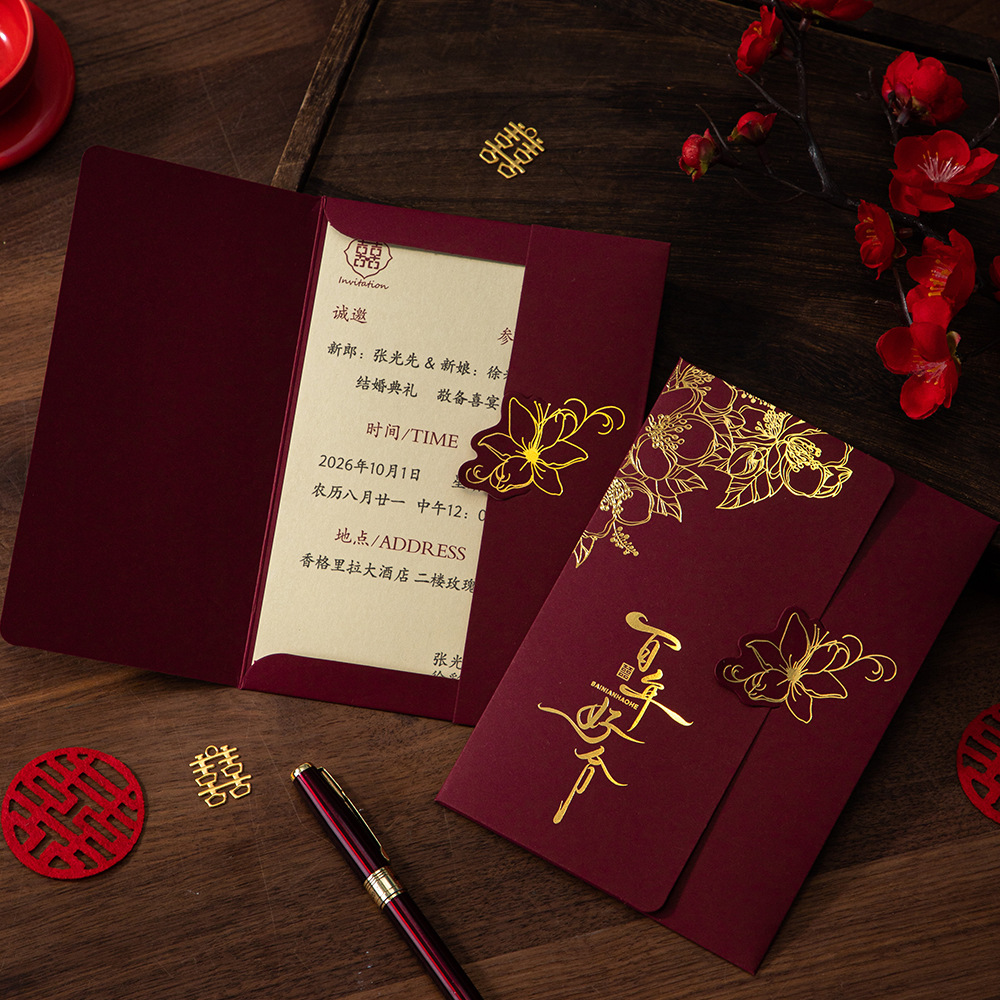 囍
Invitation
诚邀
参
新郎：张光先 & 新娘：徐
结婚典礼 敬备喜宴
时间/TIME
2026年10月1日
农历八月廿一 中午12：0
地点/ADDRESS
香格里拉大酒店 二楼玫瑰
张光
百年好合
囍
BAINIANHAOHE
囍
囍
囍